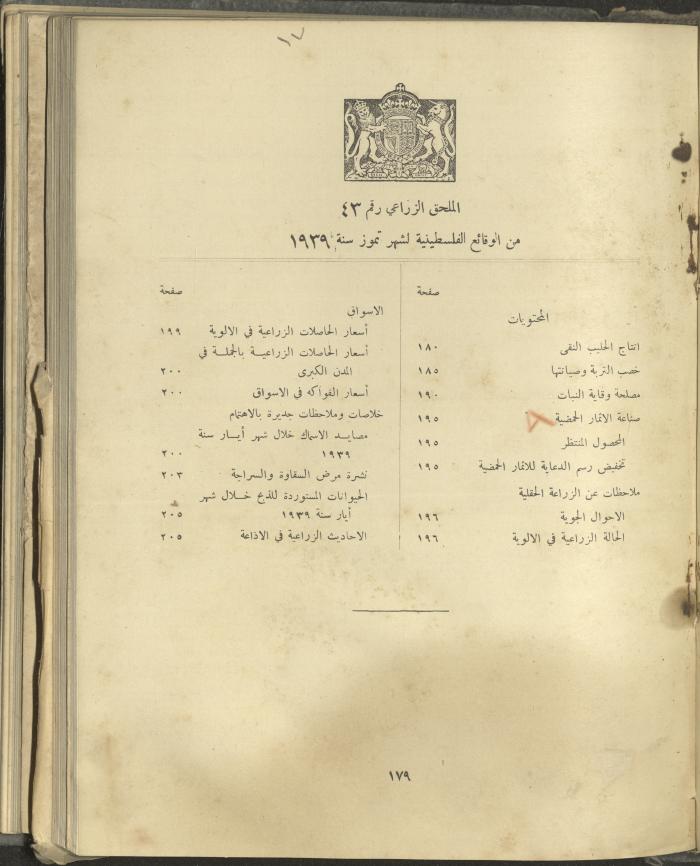 ١٧
الملحق الزراعي رقم ٤٣
من الوقائع الفلسطينية لشهر تموز سنة ١٩٣٩
صفحة
المحتويات
انتاج الحليب النقى ١٨٠
خصب التربة وصيانتها ١٨٥
مصلحة وقاية النبات ١٩٠
صناعة الاثمار الحمضية ١٩٥
المحصول المنتظر ١٩٥
تخفيض رسم الدعاية للاثمار الحمضية ١٩٥
ملاحظات عن الزراعة الحقلية
الاحوال الجوية ١٩٦
الحالة الزراعية في الالوية ١٩٦
صفحة
الاسواق
أسعار الحاصلات الزراعية في الالوية ١٩٩
أسعار الحاصلات الزراعيـة بالجملـة في
المدن الكبرى ٢٠٠
أسعار الفواكه في الاسواق ٢٠٠
خلاصات وملاحظات جديرة بالاهتمام
مصايـد الاسماك خلال شهر أيـار سنة
١٩٣٩ ٢٠٠
نشرة مرض السقاوة والسراجة ٢٠٣
الحيوانات المستوردة للذبح خـلال شهر
أيار سنة ١٩٣٩ ٢٠٥
الاحاديث الزراعية في الاذاعة ٢٠٥
١٧٩